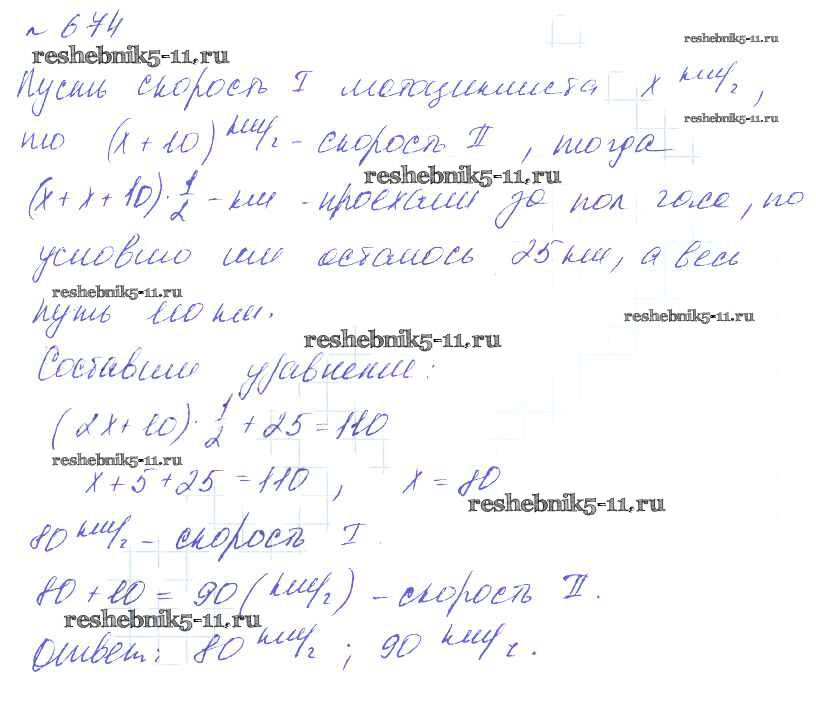 № 674
reshebnik5-11.ru
reshebnik5-11.ru
Пусть скорость I мотоциклиста x км/г,
reshebnik5-11.ru
то (x + 10) км/г - скорость II , тогда
reshebnik5-11.ru
(x + x + 10) · 1/2 - км - проехали за пол часа, по
условию им осталось 25 км, а весь
reshebnik5-11.ru
путь 110 км.
reshebnik5-11.ru
reshebnik5-11.ru
Составим уравнение:
(2x + 10) · 1/2 + 25 = 110
reshebnik5-11.ru
x + 5 + 25 = 110 , x = 80
reshebnik5-11.ru
80 км/г - скорость I.
80 + 10 = 90 (км/г) - скорость II.
reshebnik5-11.ru
Ответ: 80 км/г ; 90 км/г.